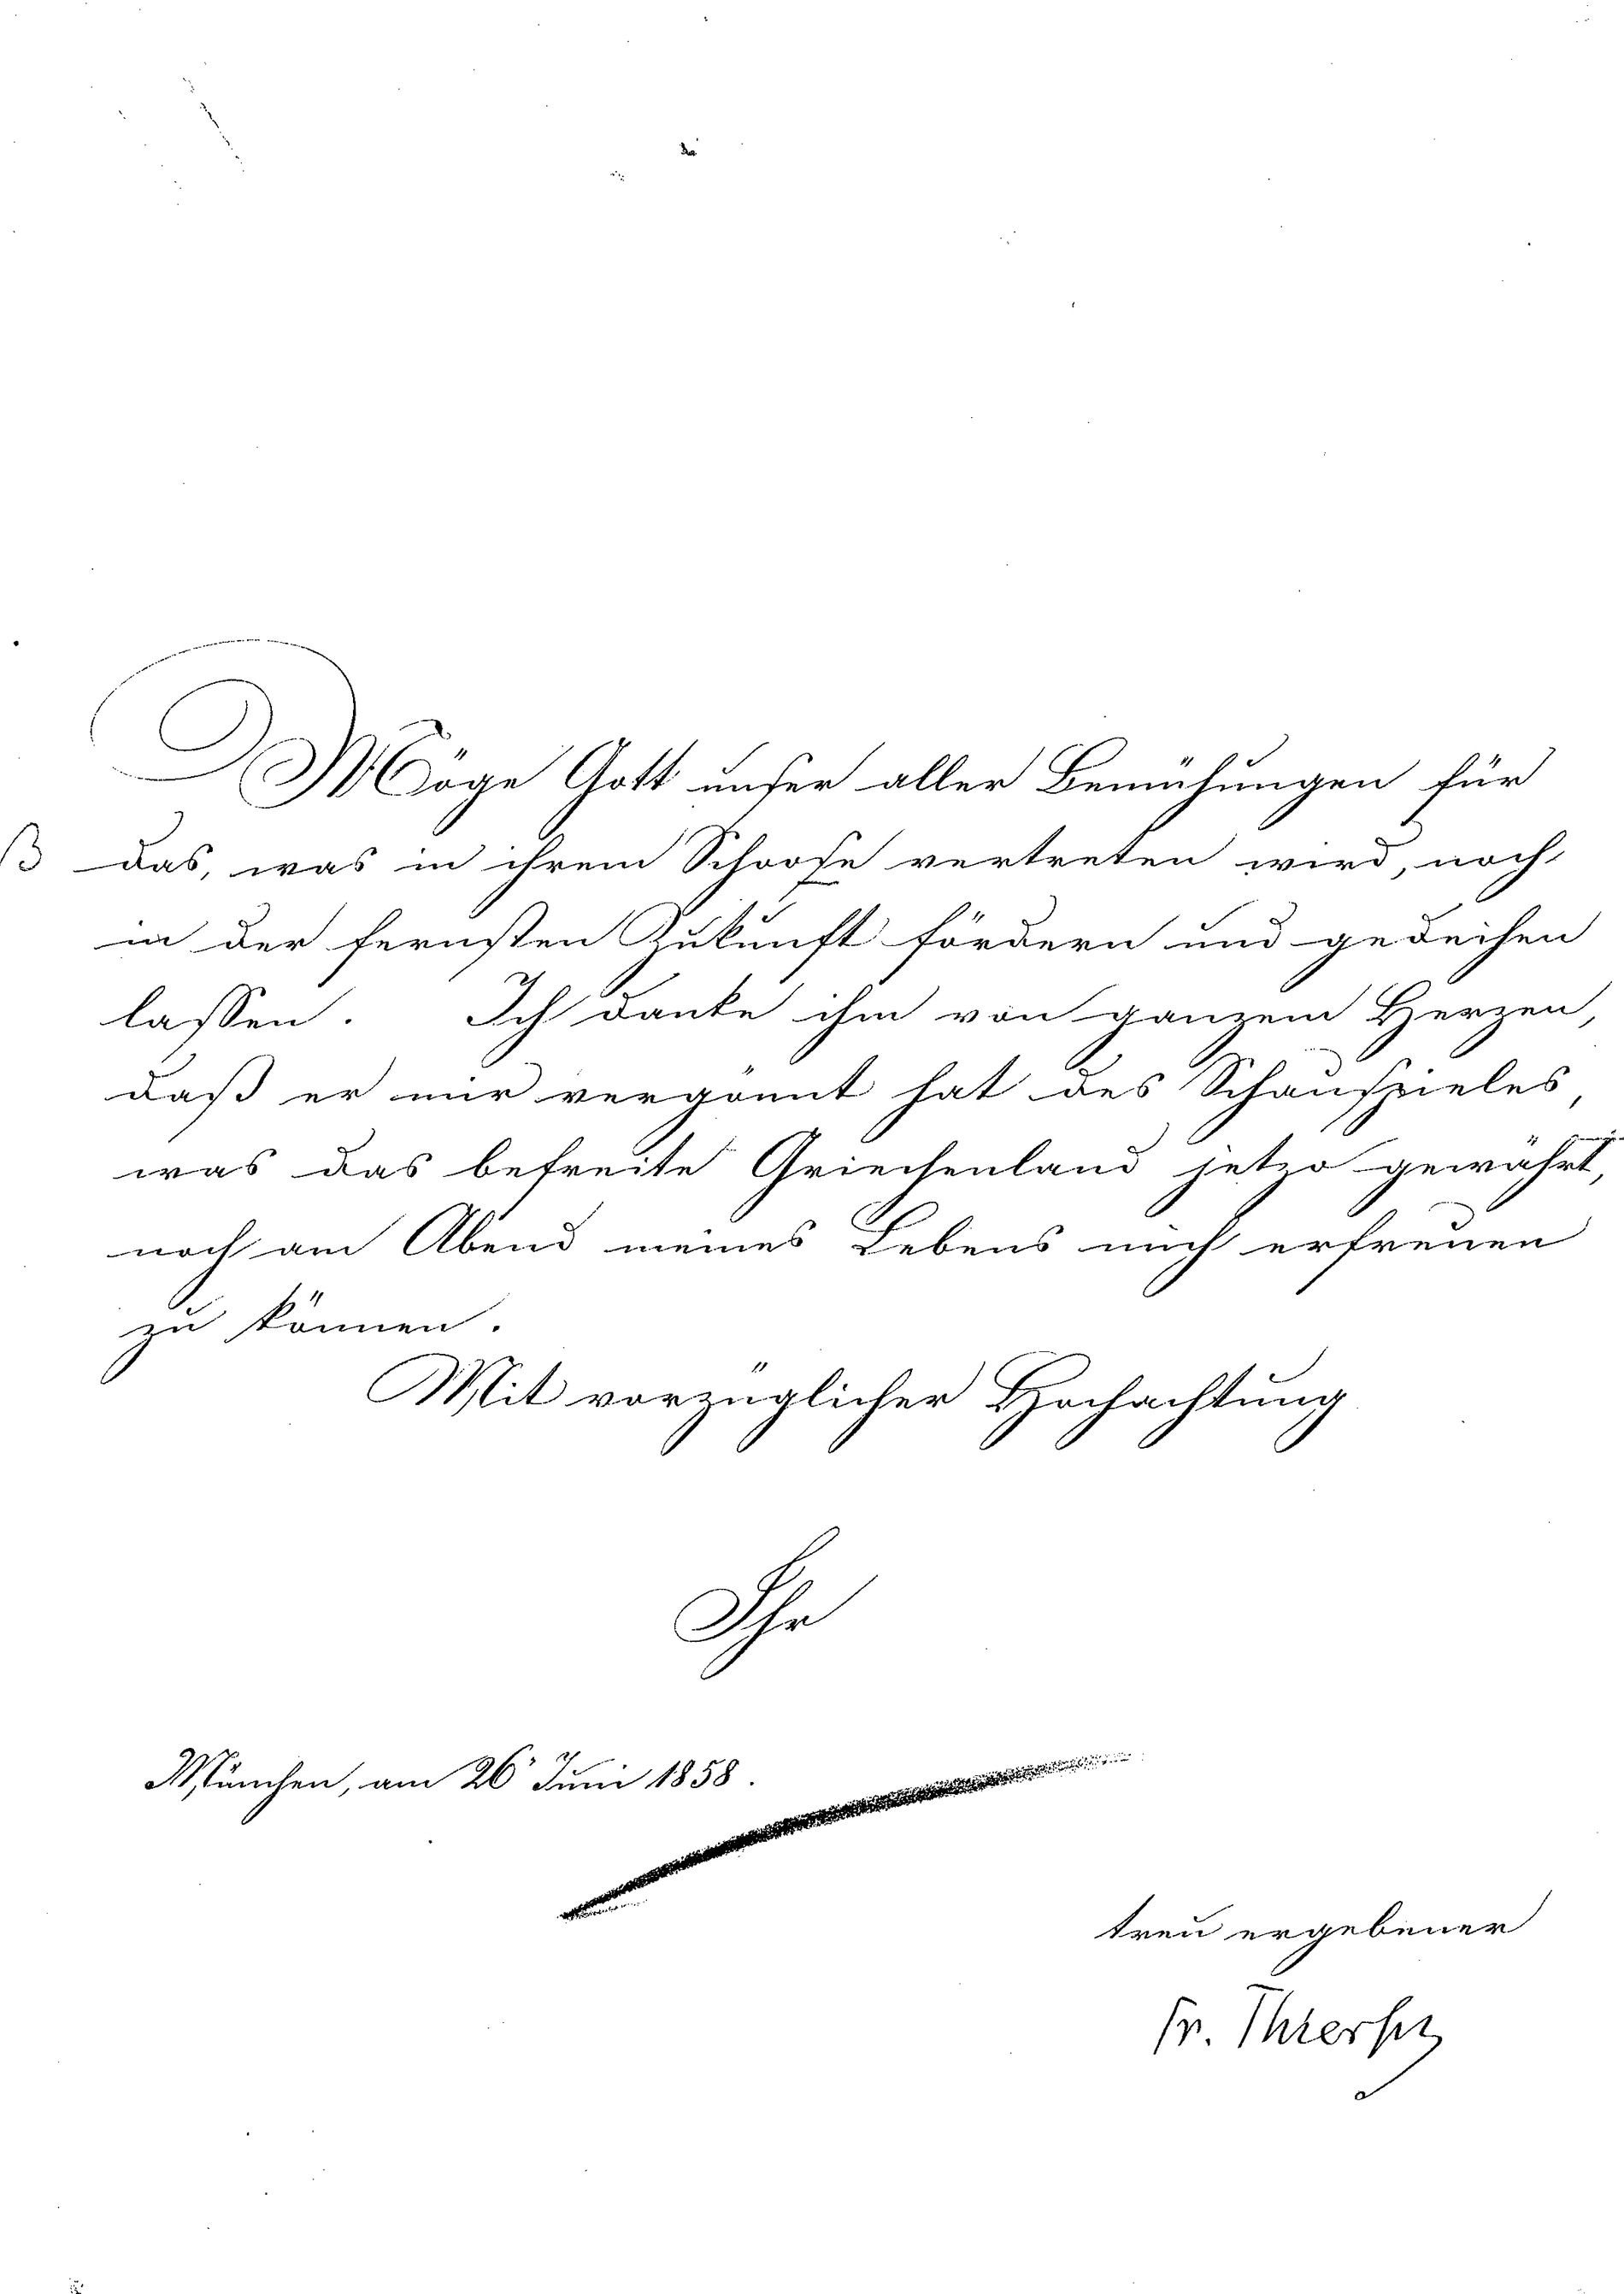 Möge Gott unser aller Bemühungen für
ß das, was in ihrem Schoose vertreten wird, noch
in der fernsten Zukunft fördern und gedeihen
lassen. Ich danke ihm von ganzem Herzen,
daß er mir vergönnt hat des Schauspieles,
was das befreite Griechenland jetzo gewährt,
noch am Abend meines Lebens mich erfreuen
zu können.
Mit vorzüglicher Hochachtung
Ihr
München, am 26 Juni 1858.
treu ergebener
Fr. Thiersch